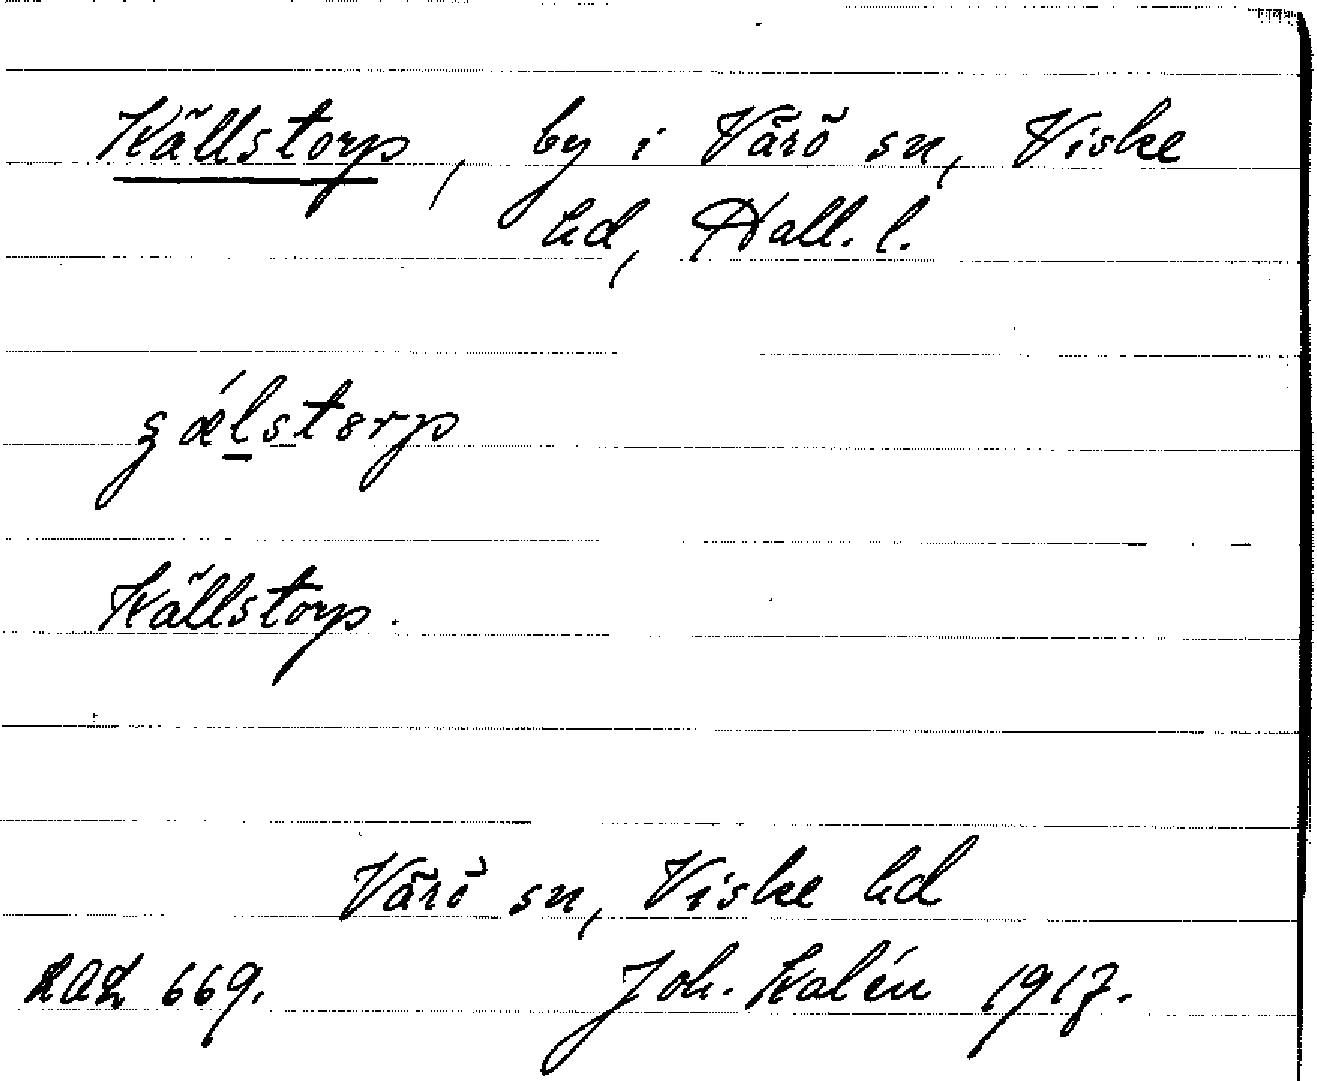 Källstorp, by i Värö sn, Viske
hd, Hall. l.
Källstorp.
Värö sn, Viske hd
LAL 669. Joh. Kalén 1917.